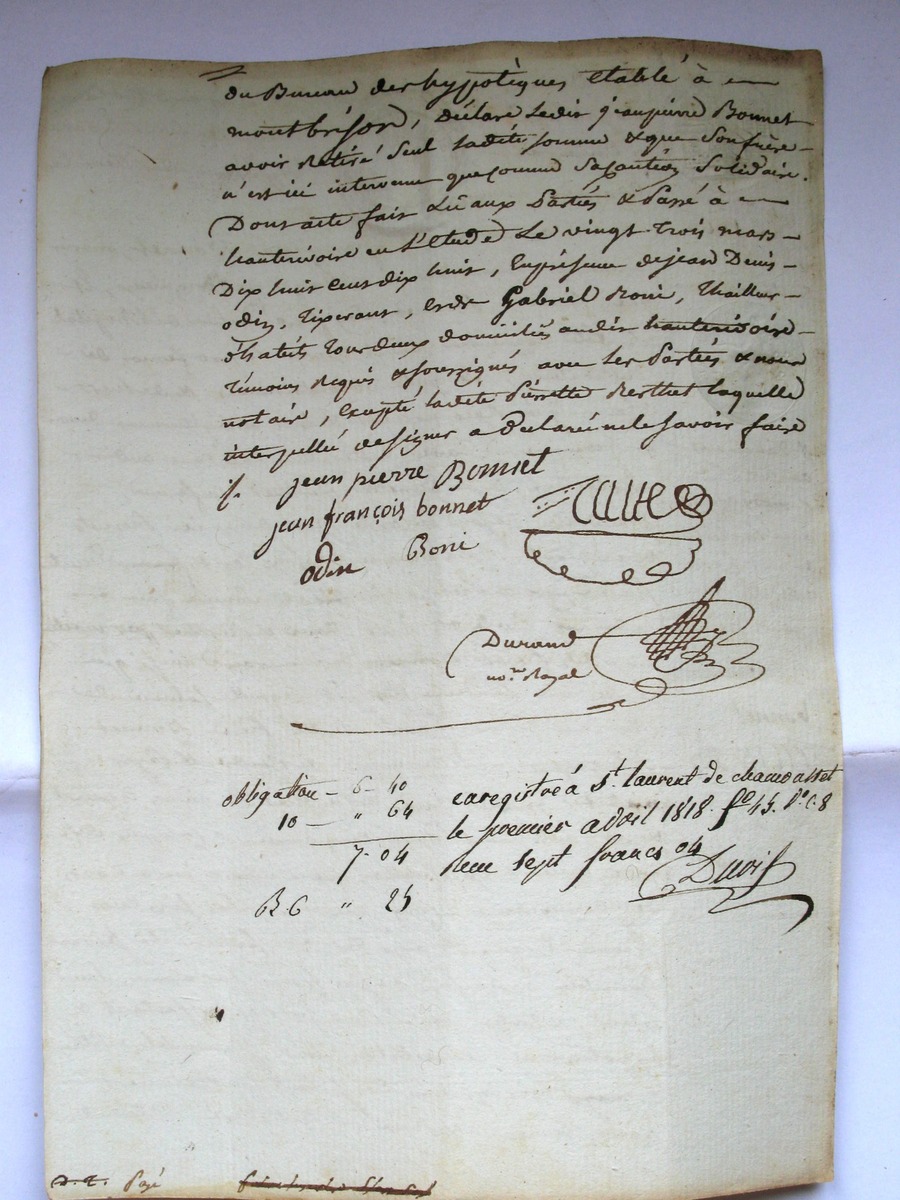 du Bureau des hypotèques etablé à
montbrison, déclare Ledit jeanpierre Bonnet
avoir Retiré Seul Ladite somme & que Sonfrère
n'est ici intervenu que comme Sa caution Solidaire.
Dont acte fait Lû aux Parties & Passé à
hauterivoire en L'Etude Le vingt trois mars
Dix huit cent dix huit, En présence de jean Denis
odin, Tixerant, et de Gabriel Roni, Thailleur
d'habits tous deux domiciliés audit hauterivoire
témoins Requis & soussignés avec Les Parties & nous
notaire, Excepté Ladite Pierrette Berthet Laquelle
interpellée de signer a Déclaré ne le Savoir faire
jean pierre Bonnet
jean françois bonnet
odin Boni
Durand
no.re Royal
obligation — 6 - 40
10 — " 64
7 - 04
" 25
enregistré à St. laurent de chamousset
le premier avril 1818. fo 45. Vo. C. 8
Recu Sept francs 04
Payé